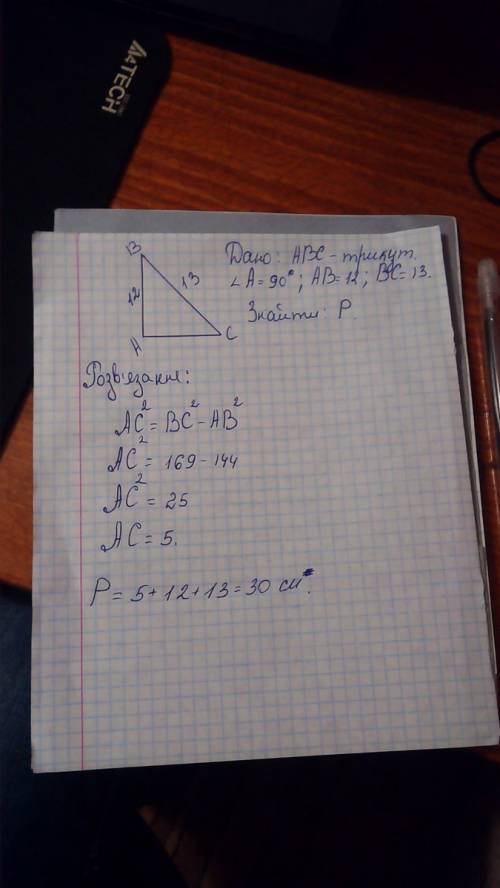 A4TECH
B
12
13
A
C
Дано: ABC - трикут.
∠A = 90°; AB = 12; BC = 13.
Знайти: P.
Розв'язання:
AC² = BC² - AB²
AC² = 169 - 144
AC² = 25
AC = 5.
P = 5 + 12 + 13 = 30 см.